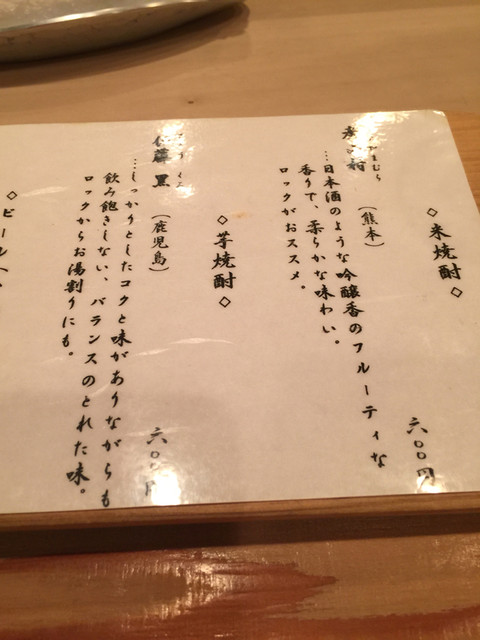 ◇米焼酎◇
六〇〇円
（熊本）
…日本酒のような吟醸香のフルーティな
香りで、柔らかな味わい。
ロックがおススメ。
◇芋焼酎◇
黒
（鹿児島）
六〇〇円
…しっかりとしたコクと味がありながらも
飲み飽きしない、バランスのとれた味。
ロックからお湯割りにも。
◇ビール